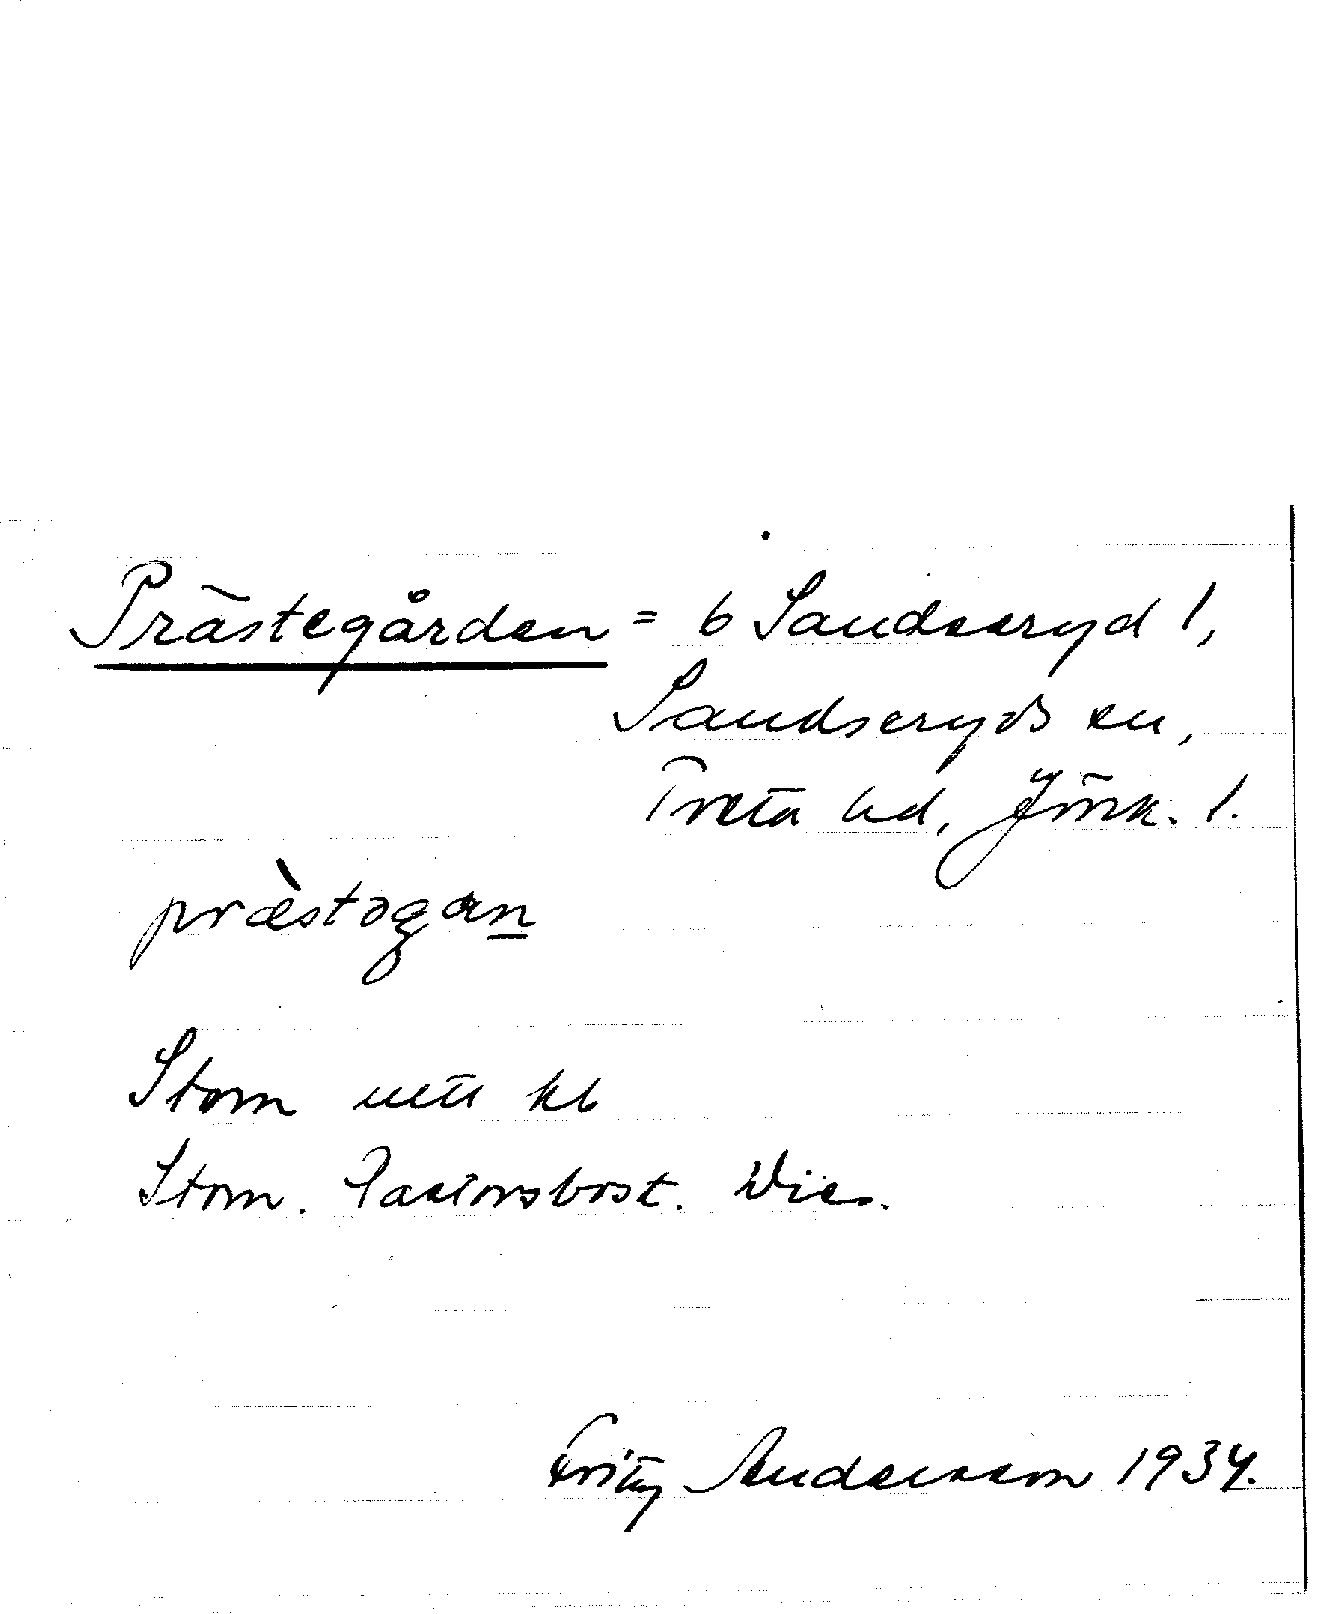 Prästegården = b Sandseryd 1,
Sandseryds sn,
Tveta hd, Jönk. l.
præ̀stəgan
Stom utt kb
Stom. Pastorsbost. Dics.
Fritz Andersson 1934.